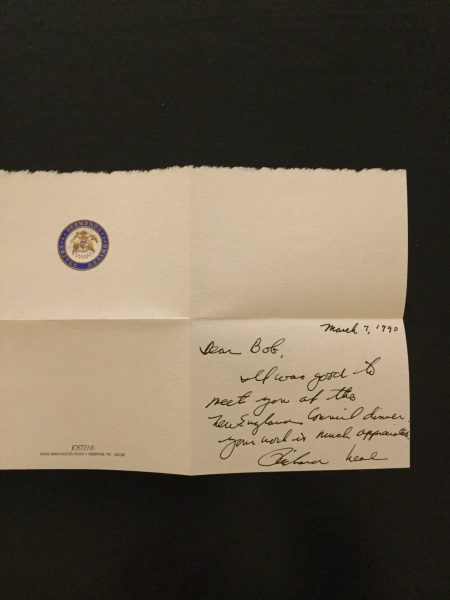 March 7, 1990
Dear Bob,
It was good to
meet you at the
New England Council dinner.
Your work is much appreciated.
Richard Neal
JOSTENS
WINCHESTER ROAD • MEMPHIS, TN